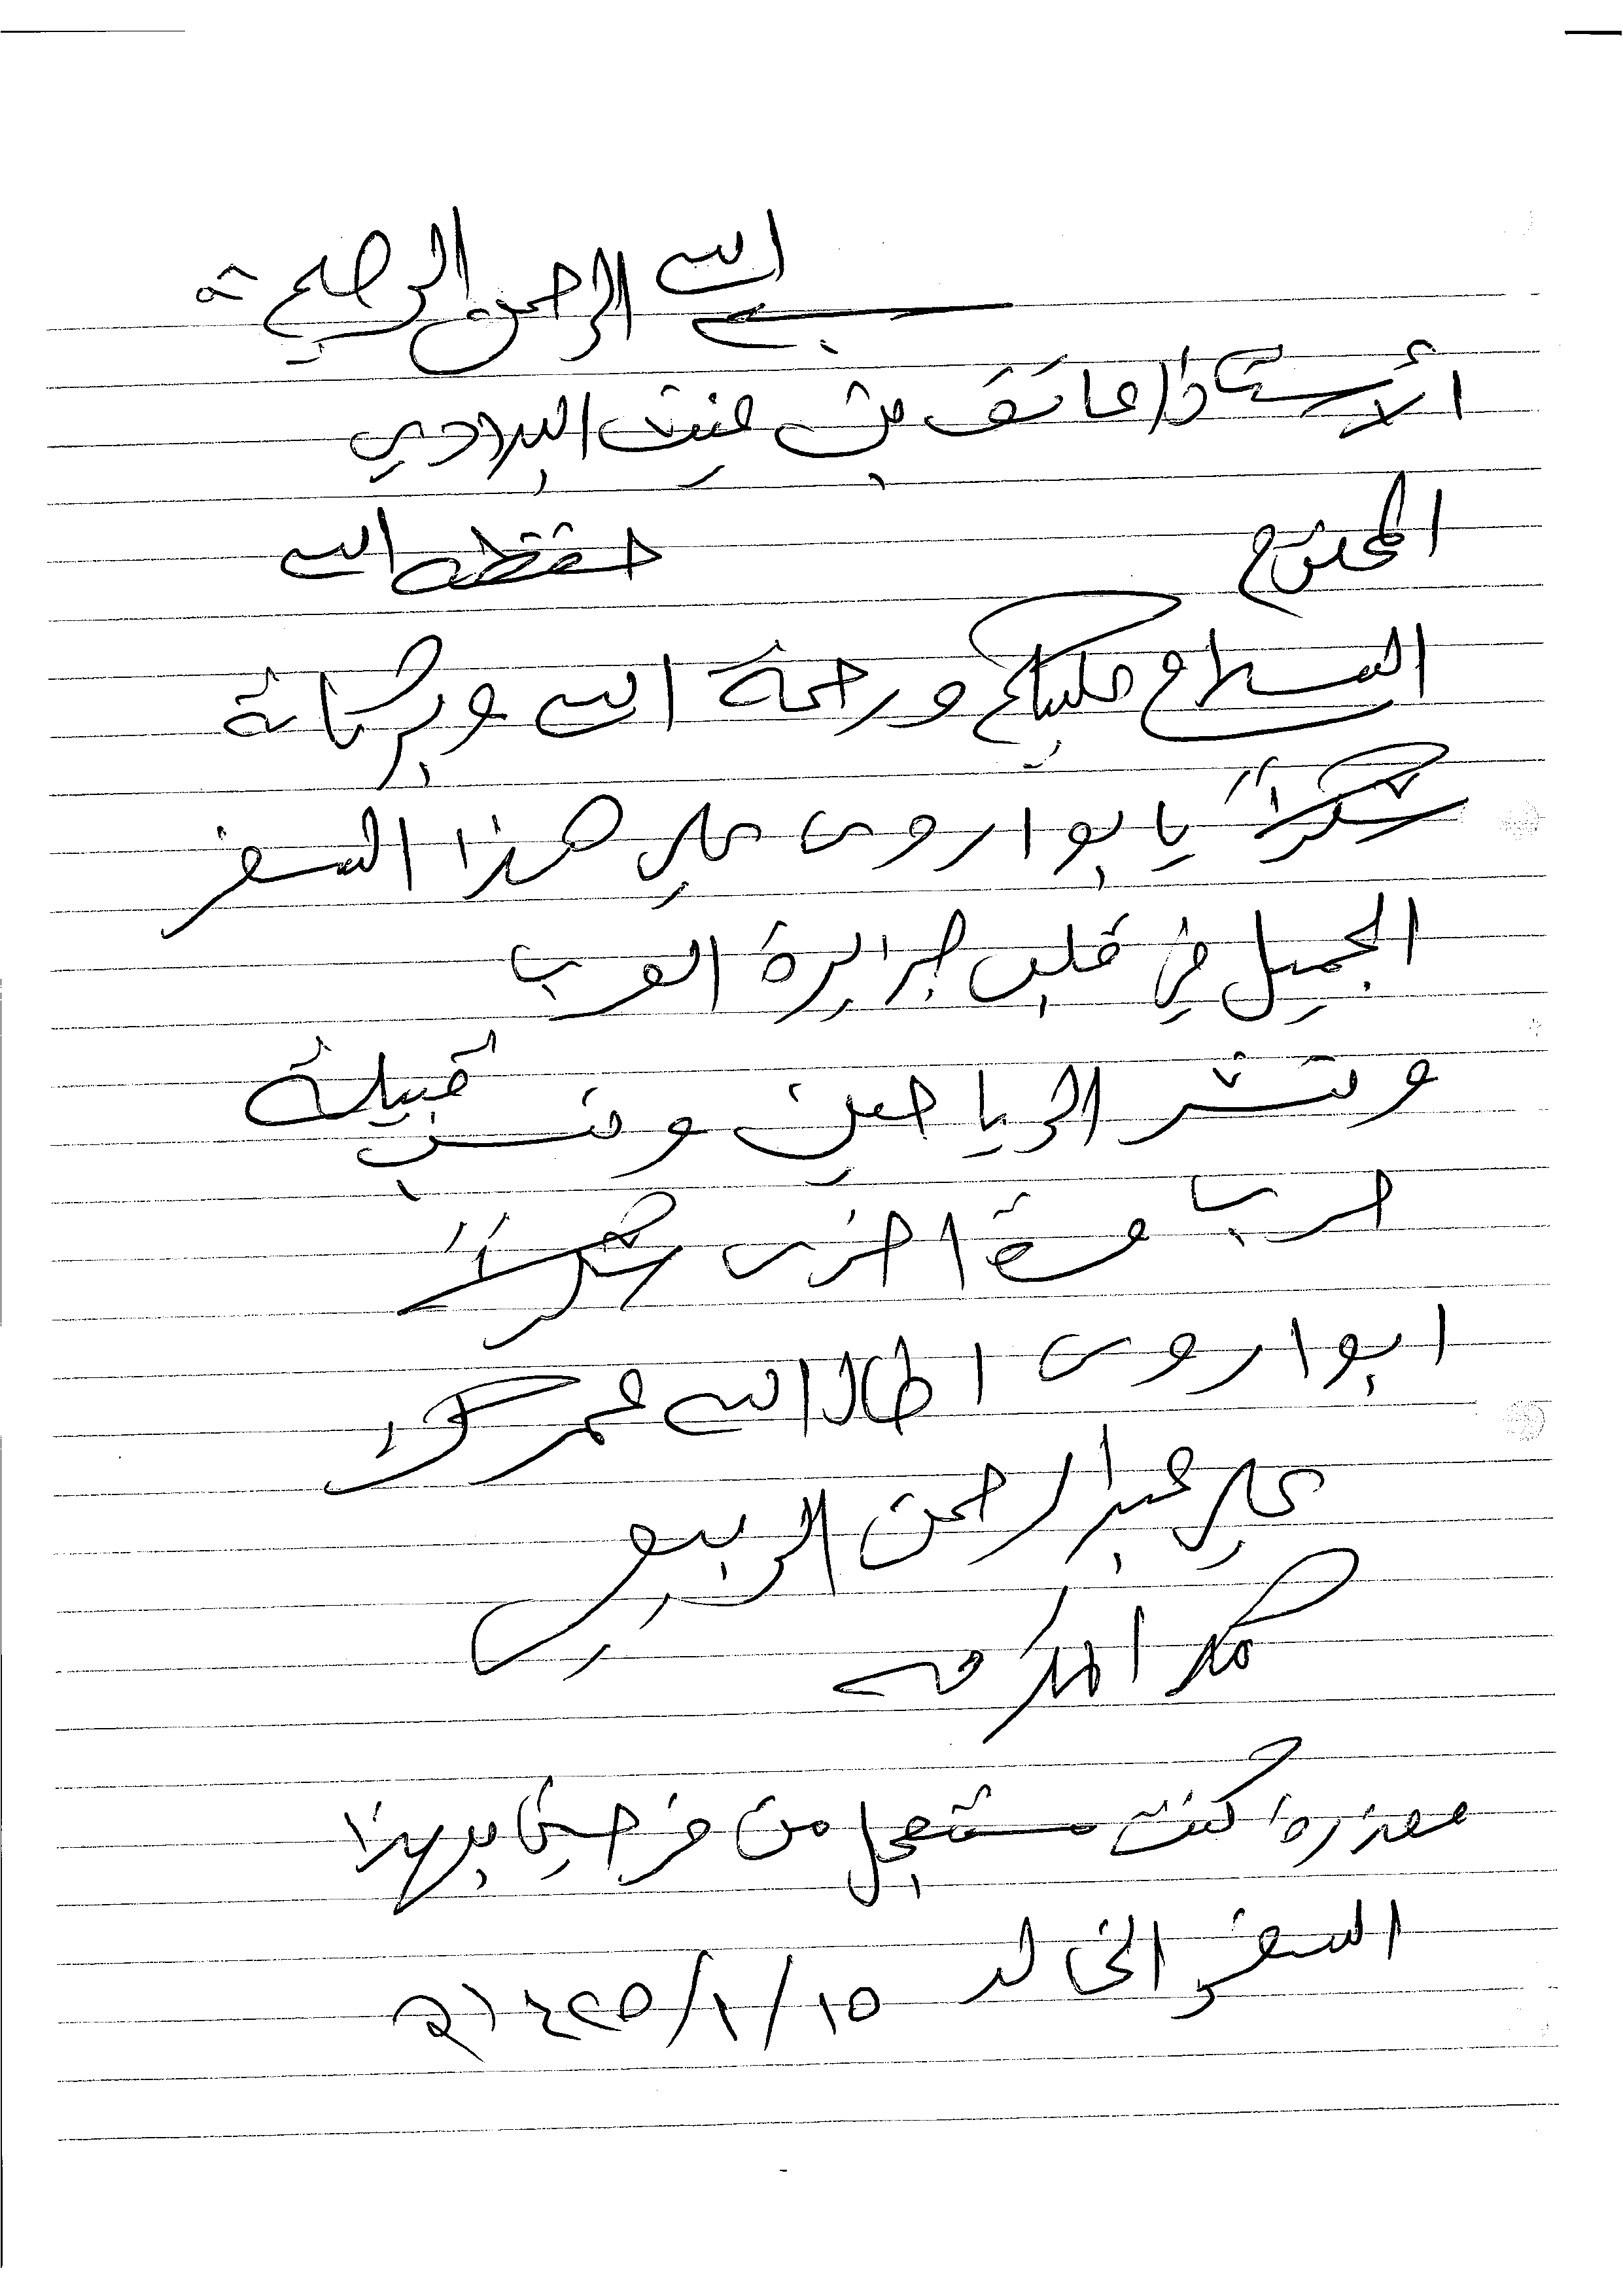 بسم الله الرحمن الرحيم
الأستاذ فائق بن البرادي
المحترم حفظه الله
السلام عليكم ورحمة الله وبركاته
شكراً يا بو اروى على هذا السفر
الجميل في قلب جزيرة العرب
ونشر الرياحين ونسب قبيلة
حرب مرة اخرى شكراً
ابو اروى اطال الله عمرك
علي عبدالرحمن الربيعي
مكة المكرمه
معذرة كنت مستعجل من فرحتنا بهذا
السفر الخالد ١٥/١/١٤٢٥